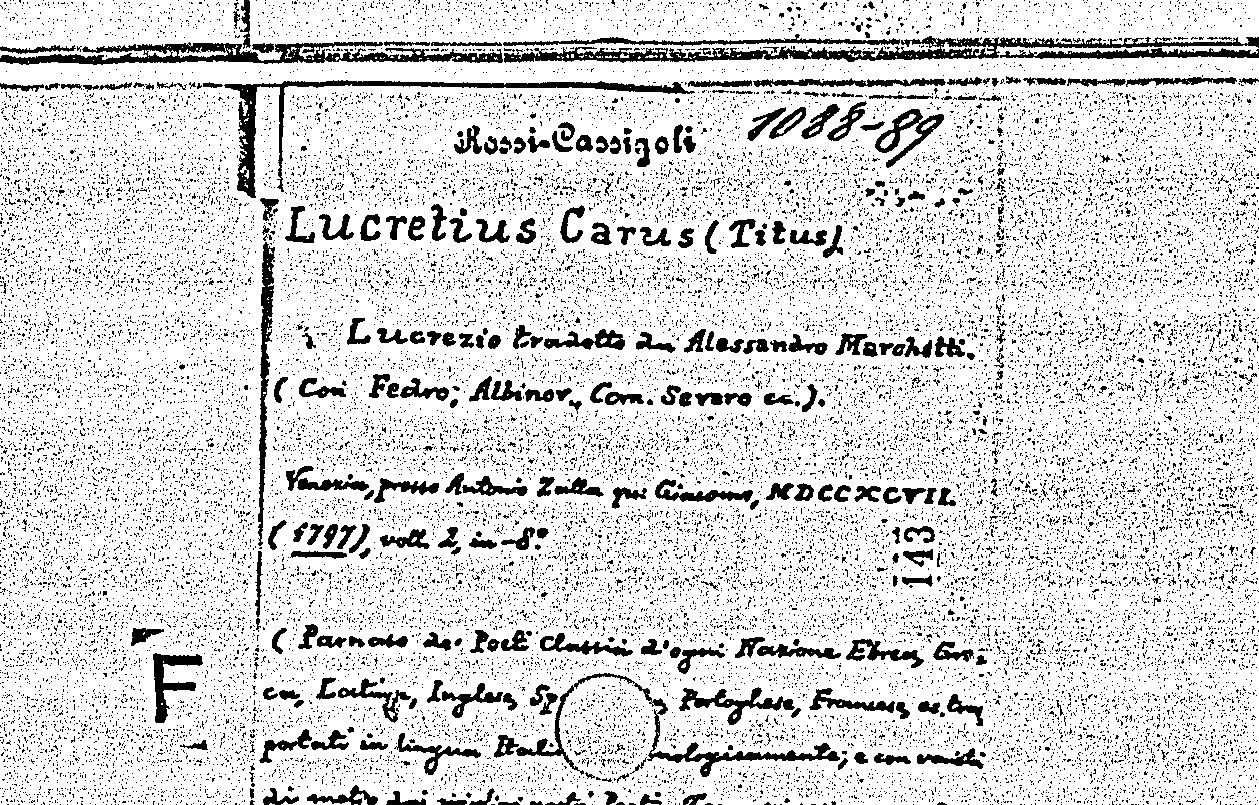 Rossi-Cassigoli 1088-89
Lucretius Carus (Titus)
Lucrezio tradotto da Alessandro Marchetti.
( Con Fedro; Albinov., Corn. Severo ec.).
Venezia, presso Antonio Zatta qu: Giacomo, MDCCXCVII.
(1797), voll. 2, in-8°.
143
( Parnaso de' Poeti Classici d'ogni Nazione Ebrea, Gre-
ca, Latina, Inglese, Portoghese, Francese,
F
portati in lingua e con